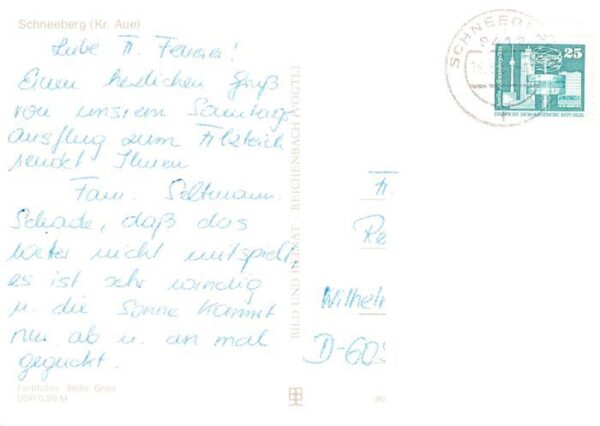 Schneeberg (Kr. Aue)
Liebe Fr. Feuerer!
Einen herzlichen Gruß
von unserem Sonntags-
ausflug zum Filzteich
sendet Ihnen
Fam. Seltmann.
Schade, daß das
Wetter nicht mitspielt,
es ist sehr windig
u. die Sonne kommt
nur ab u. an mal
geguckt.
Farbfotos: Stöhr, Grau
DDR 0,20 M
BILD UND HEIMAT · REICHENBACH (VOGTL)
SCHNEEBERG
25
Berlin-Alexanderplatz
DEUTSCHE DEMOKRATISCHE REPUBLIK
Fr.
Re
Wilhelm
D-603